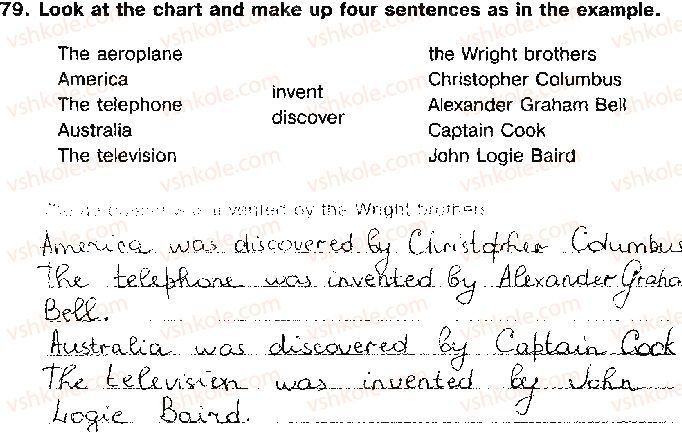 79. Look at the chart and make up four sentences as in the example.
The aeroplane the Wright brothers
America Christopher Columbus
invent
The telephone Alexander Graham Bell
discover
Australia Captain Cook
The television John Logie Baird
invented by the Wright brothers
America was discovered by Christopher Columbus
The telephone was invented by Alexander Graha
Bell.
Australia was discovered by Captain Cook
The television was invented by John
Logie Baird.
vshkole.com